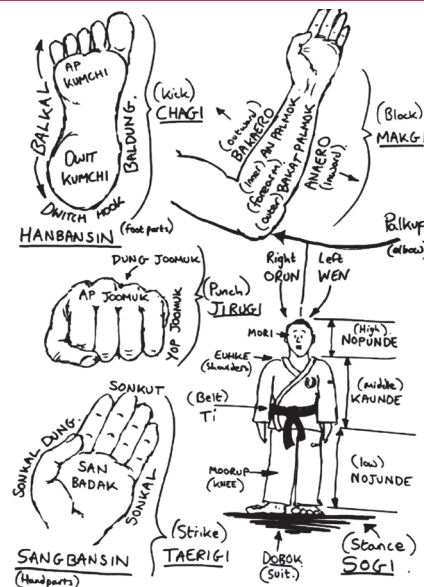 AP
KUMCHI
BALKAL
OWIT
KUMCHI
BALDUNG.
DWITCH MOOK
HANBANSIN (foot parts)
(Kick)
CHAGI
(outward)
BAKAERO
(inner) AN PALMOK
(forearm)
(outer) BAKAT PALMOK
ANAERO
(inward)
(Block)
MAKGI
Palkup
(elbow)
DUNG JOOMUK
AP JOOMUK
YOP JOOMUK
(Punch)
JIRUGI
Right
ORUN
Left
WEN
MORI
EUHKE
(shoulders)
(Belt)
Ti
MOORUP
(KNEE)
(High)
NOPUNDE
(middle)
KAUNDE
(low)
NOJUNDE
DOBOK
(suit.)
(Stance)
SOGI
SONKUT
SONKAL DUNG.
SAN
BADAK
SONKAL
SANGBANSIN
(Handparts)
(Strike)
TAERIGI